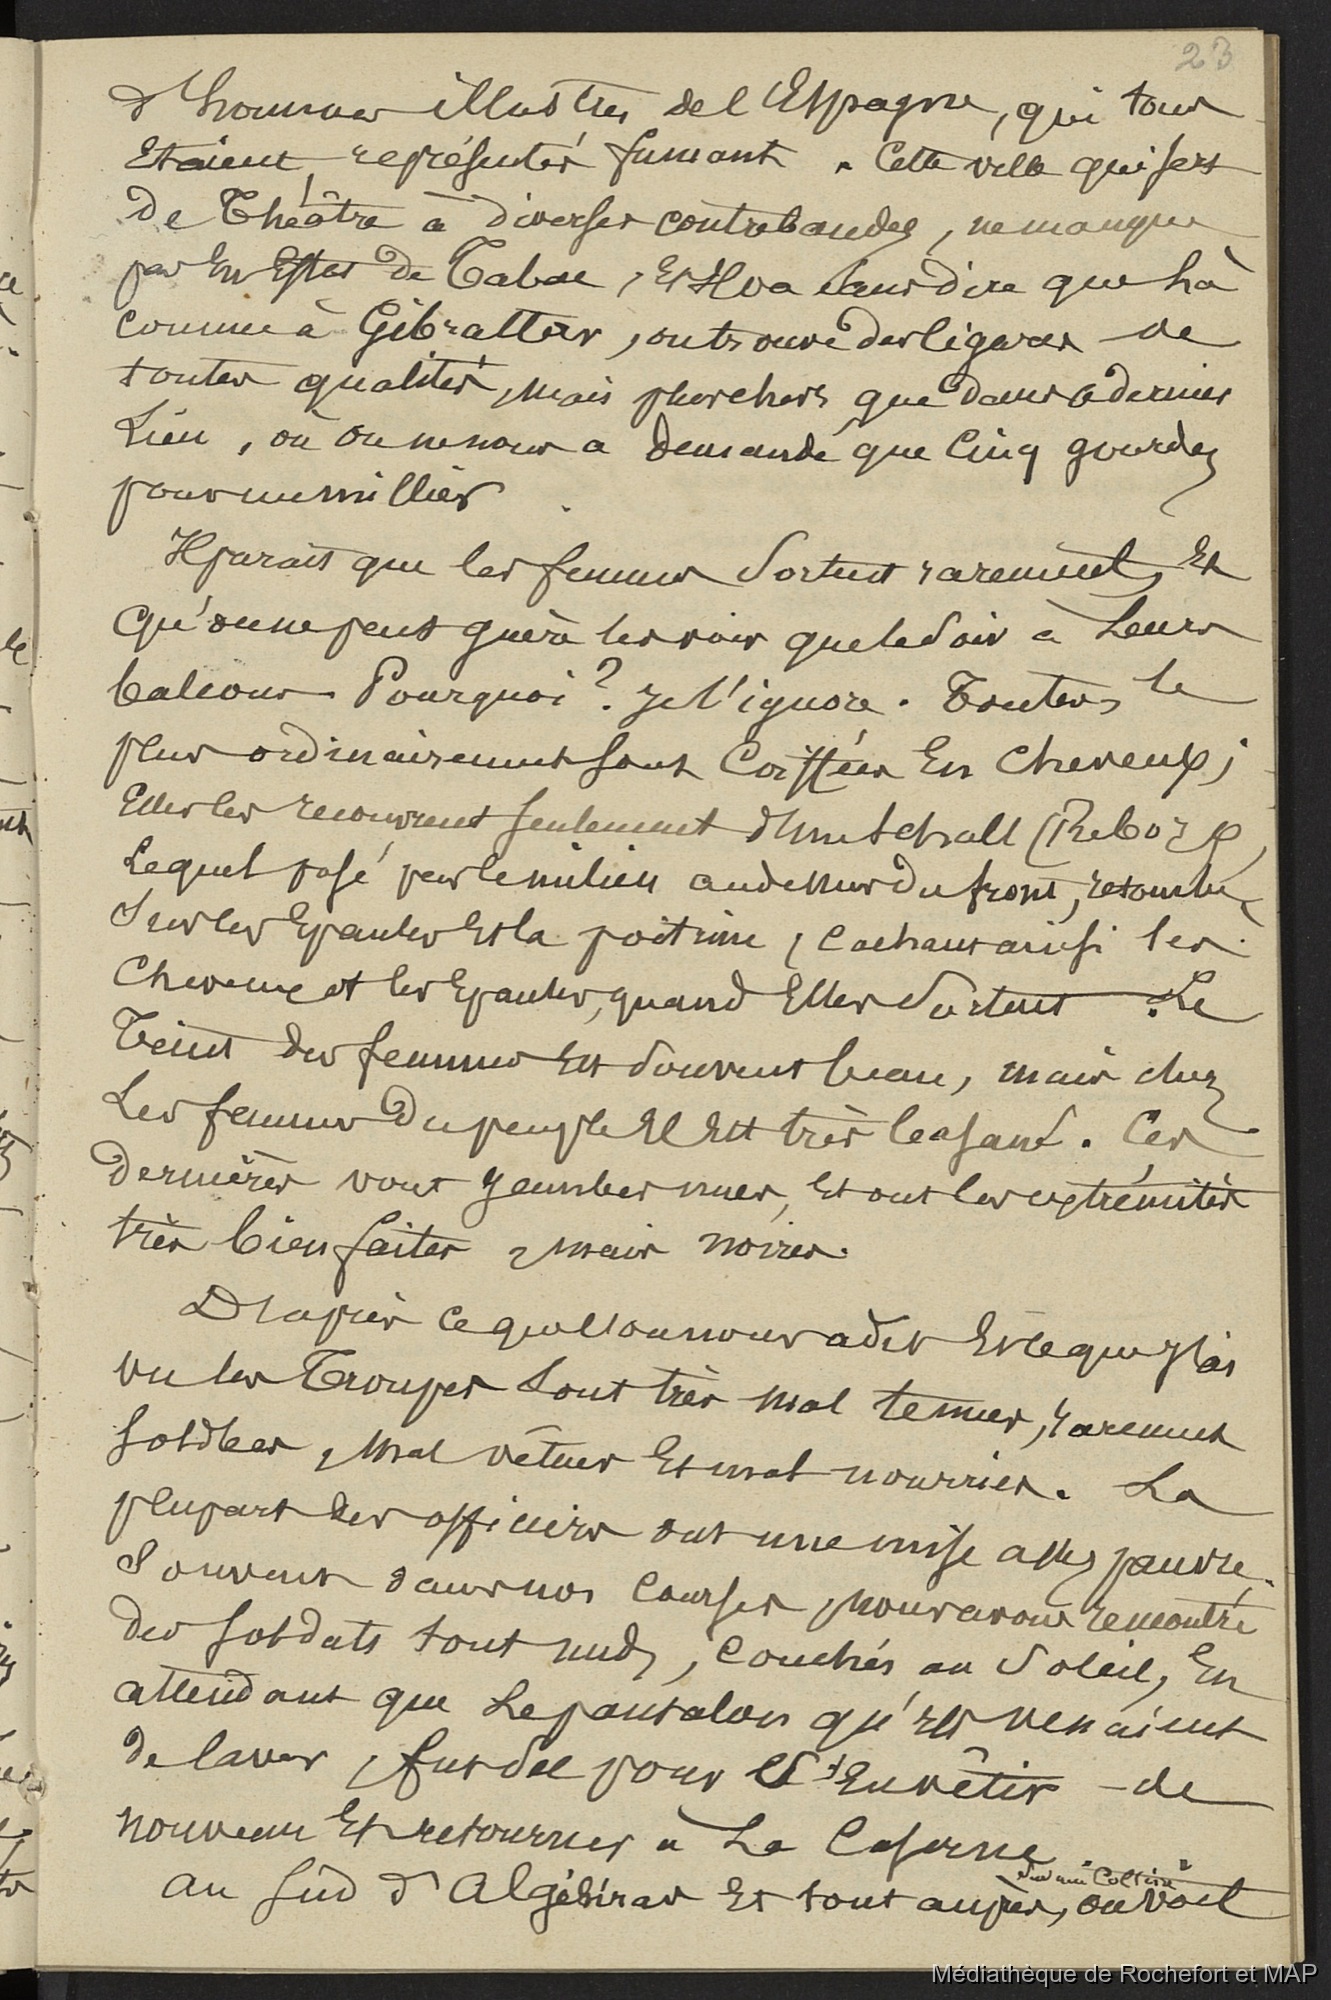 23
d'hommes illustres de l'Espagne, qui tous
Etaient représentés fumant. Cette ville qui sert
de Théâtre à diverses contrebandes, ne manque
pas En Effet de Tabac, Et Il va sans dire que là
comme à Gibraltar, on trouve des Cigares de
toutes qualités, mais plus chers que dans ce dernier
Lieu, où on ne nous a demandé que Cinq gourdes
pour un millier.
Il parait que les femmes sortent rarement, Et
qu'on ne peut guère les voir que le soir à Leurs
balcons. Pourquoi ? Je l'ignore. Toutes, le
plus ordinairement sont Coiffées En cheveux ;
Elles les recouvrent seulement d'un schall (Rebozo
Lequel posé par le milieu au dessus du front, retombe
Sur les Epaules Et la poitrine, cachant ainsi les
Cheveux et les Epaules, quand Elles sortent. Le
Teint des femmes Est souvent beau, mais chez
Les femmes du peuple Il Est très basané. Ces
dernières vont jambes nues, Et ont les extrémités
très bien faites, mais noires.
D'après ce que l'on nous a dit Et ce que j'ai
vu les Troupes sont très mal tenues, rarement
soldées, mal vêtues Et mal nourries. La
plupart des officiers ont une mise assez pauvre.
Souvent dans nos Courses, nous avons rencontré
des soldats tout nuds, couchés au soleil, En
attendant que Le pantalon qu'ils venaient
de laver, fut sec pour s'En vêtir de
nouveau Et retourner à La Caserne.
sur une Colline
au Sud d'Algésiras Et tout auprès, on voit
Médiathèque de Rochefort et MAP